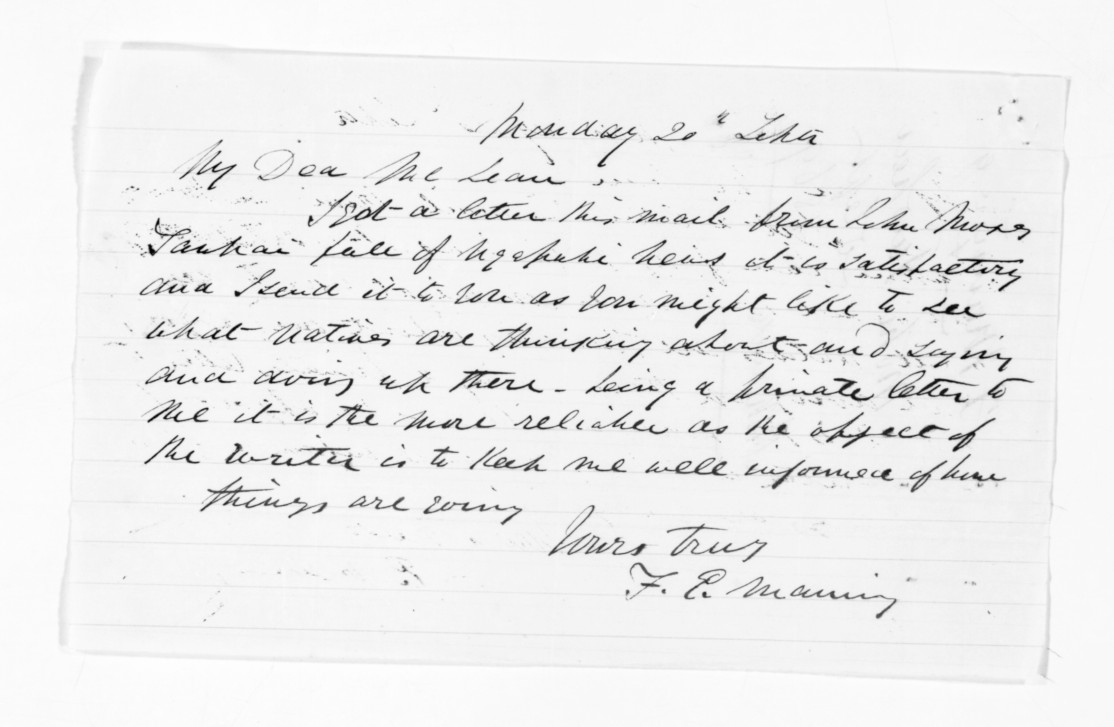 Monday 20th
My Dear McLean
I got a letter this mail from John Moses
Tawhai full of Ngapuhi news it is satisfactory
and I send it to you as you might like to see
what natives are thinking about and saying
and doing up there - being a private letter to
me it is the more reliable as the object of
the writer is to keep me well informed of how
things are going
Yours truly
F. E. Maning